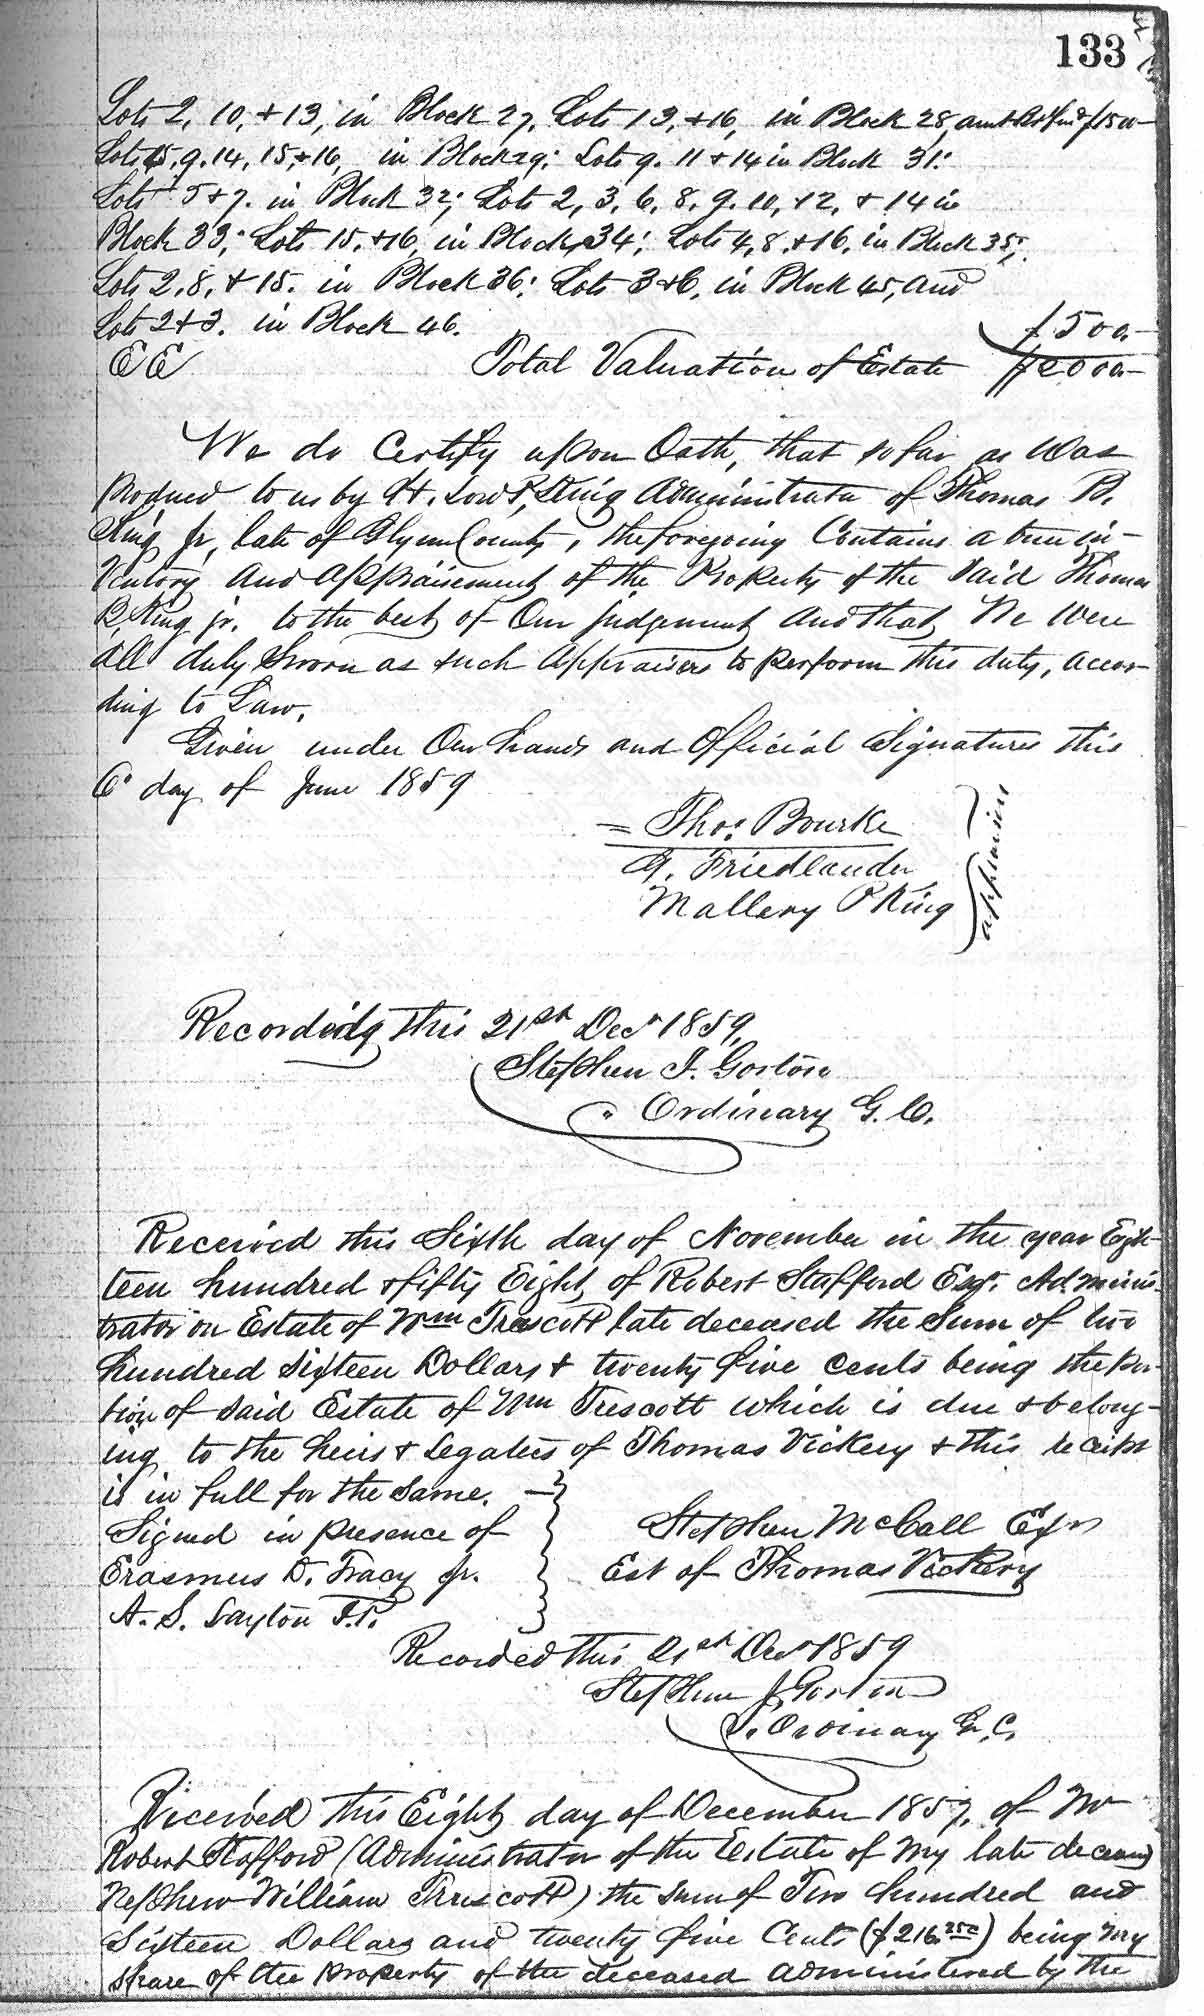 133
Lots 2, 10, + 13, in Block 27, Lots 13, +16, in Block 28, amt $1500—
Lots 5, 9. 14, 15, +16, in Block 29; Lots 9. 11 + 14 in Block 31;
Lots 5 + 7. in Block 32; Lots 2, 3, 6, 8, 9. 10, 12, + 14 in
Block 33; Lots 15, +16, in Block 34; Lots 4, 8, +16, in Block 35;
Lots 2, 8, + 15. in Block 36; Lots 3 + 6, in Block 45, and
Lots 2 + 3. in Block 46. $500.—
E E Total Valuation of Estate $2000.—
We do Certify upon Oath, that so far as was
produced to us by H. Lord P. King Administrator of Thomas B.
King Jr, late of Glynn County, the foregoing Contains a true in-
ventory and appraisement of the Property of the said Thomas
B. King jr. to the best of Our Judgement and that We were
all duly Sworn as such Appraisers to perform this duty, accor-
ding to Law.
Given under Our hands and Official Signatures this
6th day of June 1859
Thos: Bourke
G. Friedlander
Mallery P King
appraisers
Recorded this 21st Decr 1859,
Stephen J. Gorton
Ordinary G. C.
Received this Sixth day of November in the year Eigh-
teen hundred + fifty Eight, of Robert Stafford Esqr. Adminis-
trator on Estate of Wm Trescott late deceased the Sum of two
hundred Sixteen Dollars + twenty five cents being the por-
tion of said Estate of Wm Trescott which is due + belong-
ing to the heirs + Legatees of Thomas Vickery + this receipt
is in full for the same.
Signed in presence of Stephen McCall Exr
Erasmus D. Tracy Jr. Est of Thomas Vickery
A. S. Layton J.P.
Recorded this 21st Decr 1859
Stephen J. Gorton
Ordinary G. C.
Received this Eighth day of December 1857, of Mr
Robert Stafford (Administrator of the Estate of my late deceased
Nephew William Trescott) the sum of Two hundred and
Sixteen Dollars and twenty five Cents ($216.25c) being my
share of the property of the deceased administered by the